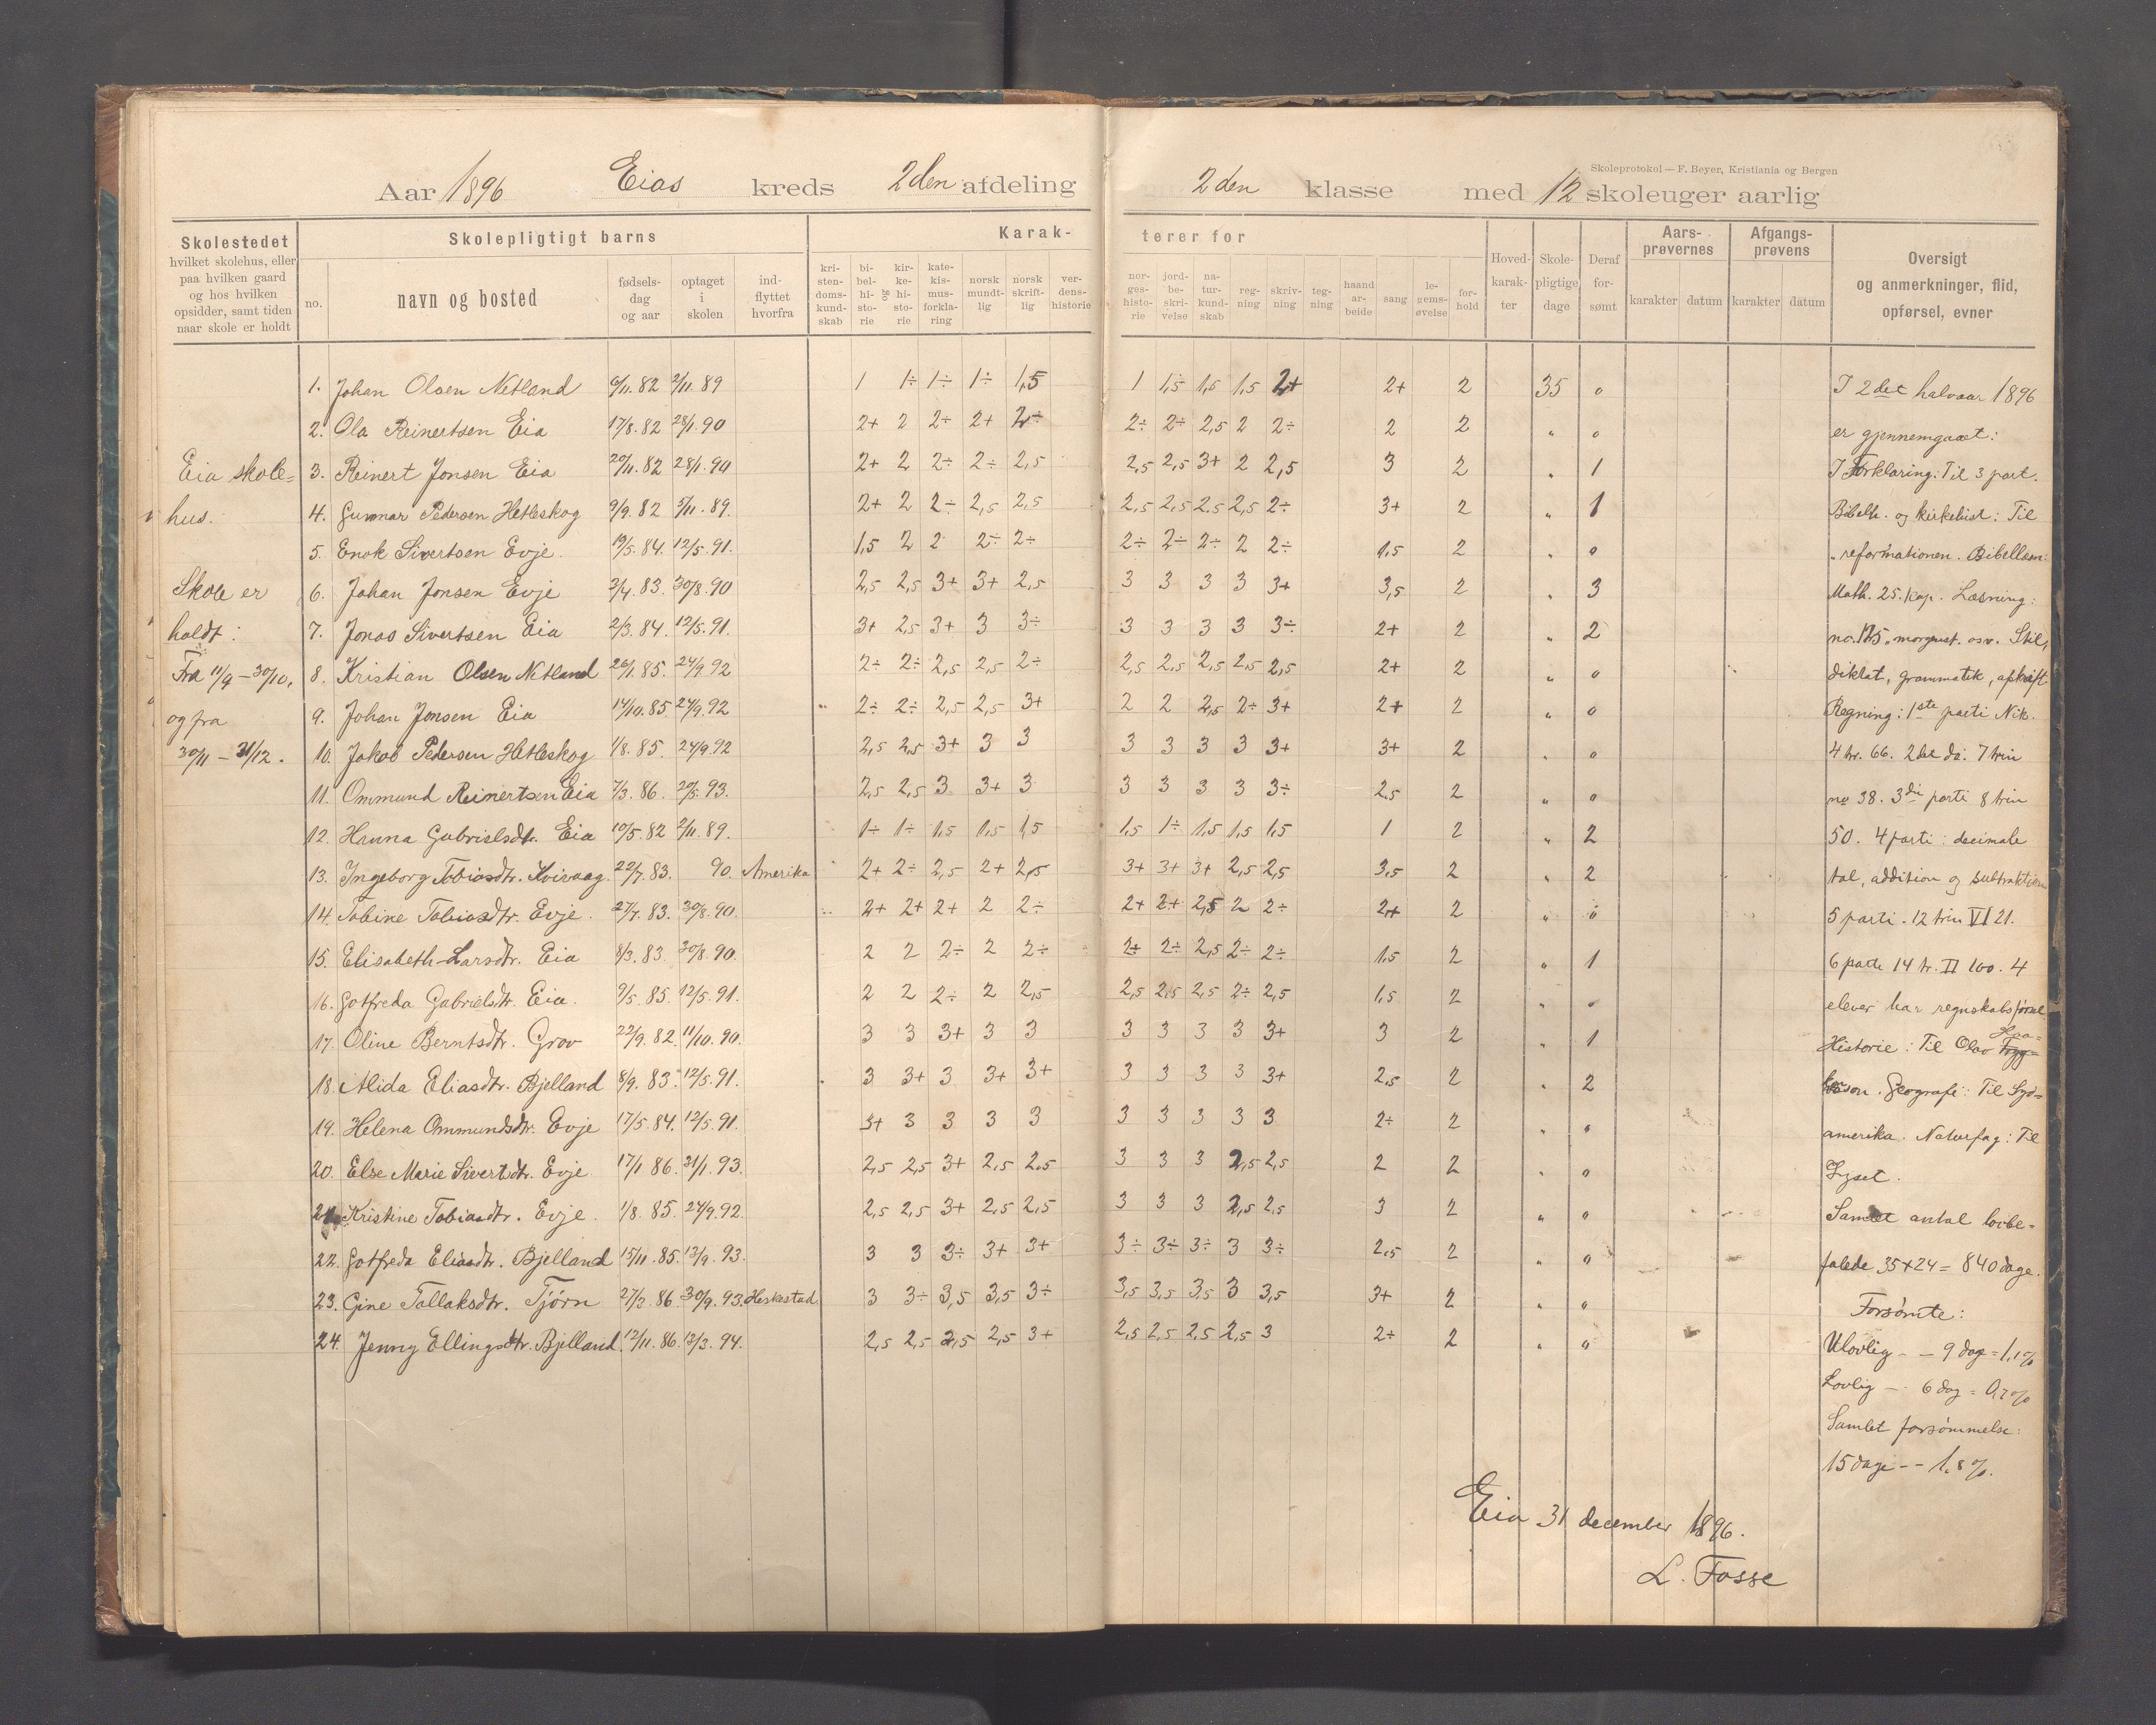 Skoleprotokol — F. Beyer, Kristiania og Bergen
Aar 1896 Eias kreds 2den afdeling 2den klasse med 12 skoleuger aarlig
Skolestedet
hvilket skolehus, eller
paa hvilken gaard
og hos hvilken
opsidder, samt tiden
naar skole er holdt
Skolepligtigt barns
no.
navn og bosted
fødsels-
dag
og aar
optaget
i
skolen
ind-
flyttet
hvorfra
Karak-
terer for
kri-
sten-
doms-
kund-
skab
bi-
bel-
hi-
sto-
rie
og
kir-
ke-
hi-
sto-
rie
kate-
kis-
mus-
forkla-
ring
norsk
mundt-
lig
norsk
skrift-
lig
ver-
dens-
historie
nor-
ges-
histo-
rie
jord-
be-
skri-
velse
na-
tur-
kund-
skab
reg-
ning
skriv-
ning
teg-
ning
haand
ar-
beide
sang
le-
gems-
øvelse
for-
hold
Hoved-
karak-
ter
Skole-
pligtige
dage
Deraf
for-
sømt
Aars-
prøvernes
karakter datum
Afgangs-
prøvens
karakter datum
Oversigt
og anmerkninger, flid,
opførsel, evner
Eia skole-
hus.
Skole er
holdt:
Fra 11/9 – 30/10,
og fra
30/11 – 31/12.
1. Johan Olsen Netland 6/11. 82 2/11 89 1 1÷ 1÷ 1÷ 1,5 1 1,5 1,5 1,5 2+ 2+ 2 35 0
2. Ola Reinertsen Eia 17/8. 82 28/1. 90 2+ 2 2÷ 2+ 2÷ 2÷ 2÷ 2,5 2 2÷ 2 2 " 0
3. Reinert Jonsen Eia 20/11. 82 28/1. 90 2+ 2 2÷ 2÷ 2,5 2,5 2,5 3+ 2 2,5 3 2 " 1
4. Gunnar Pedersen Hetleskog 9/9. 82 5/11. 89. 2+ 2 2÷ 2,5 2,5 2,5 2,5 2.5 2,5 2÷ 3+ 2 " 1
5. Enok Sivertsen Evje. 19/5. 84. 12/5. 91. 1,5 2 2 2÷ 2÷ 2÷ 2÷ 2÷ 2 2÷ 1,5 2 " 0
6. Johan Jonsen Evje 3/4. 83. 30/8. 90 2,5 2,5 3+ 3+ 2,5 3 3 3 3 3+ 3,5 2 " 3
7. Jonas Sivertsen Eia 2/3. 84. 12/5. 91. 3+ 2,5 3+ 3 3÷ 3 3 3 3 3÷ 2+ 2 " 2
8. Kristian Olsen Netland 26/1. 85. 24/9. 92 2÷ 2÷ 2,5 2,5 2÷ 2,5 2,5 2,5 2,5 2,5 2+ 2 " 0
9. Johan Jonsen Eia 14/10. 85. 24/9. 92 2÷ 2÷ 2,5 2,5 3+ 2 2 2,5 2÷ 3+ 2+ 2 " 0
10. Jakob Pedersen Hetleskog 1/8. 85. 24/9. 92 2,5 2,5 3+ 3 3 3 3 3 3 3+ 3+ 2 " 0
11. Ommund Reinertsen Eia 7/3. 86. 20/5. 93. 2,5 2,5 3 3+ 3 3 3 3 3 3÷ 2.5 2 " 0
12. Hanna Gabrielsdtr. Eia 10/5. 82 2/11. 89. 1÷ 1÷ 1,5 1,5 1,5 1,5 1÷ 1,5 1,5 1,5 1 2 " 2
13. Ingeborg Tobiasdtr. 22/7. 83. 90. Amerika 2+ 2÷ 2,5 2+ 2,5 3+ 3+ 3+ 2,5 2,5 3,5 2 " 2
14. Tobine Tobiasdtr. Evje. 27/7. 83. 30/8. 90. 2+ 2+ 2+ 2 2÷ 2+ 2+ 2,5 2 2÷ 2+ 2 " 0
15. Elisabeth Larsdtr. Eia 8/3. 83. 30/8. 90. 2 2 2÷ 2 2÷ 2÷ 2÷ 2,5 2÷ 2÷ 1.5 2 " 1
16. Gotfreda Gabrielsdtr. Eia. 9/5. 85. 12/5. 91. 2 2 2÷ 2 2,5 2,5 2,5 2,5 2÷ 2,5 1,5 2 " 0
17. Oline Berntsdtr. Grov 22/9. 82. 11/10. 90. 3 3 3+ 3 3 3 3 3 3 3+ 3 2 " 1
18. Alida Eliasdtr. Bjelland 8/9. 83. 12/5. 91. 3 3+ 3 3+ 3+ 3 3 3 3 3+ 2,5 2 " 2
19. Helena Ommundsdtr. Evje 17/5. 84. 12/5. 91. 3+ 3 3 3 3 3 3 3 3 3 2÷ 2 " 0
20. Else Marie Sivertsdtr. Evje 17/1 86. 31/1. 93. 2,5 2,5 3+ 2,5 2.5 3 3 3 2,5 2,5 2 2 " 0
21. Kristine Tobiasdtr. Evje. 1/8. 85. 24/9. 92. 2,5 2,5 3+ 2,5 2,5 3 3 3 2,5 2,5 3 2 " 0
22. Gotfreda Eliasdtr. Bjelland 15/11. 85. 13/9. 93. 3 3 3÷ 3+ 3+ 3÷ 3÷ 3÷ 3 3÷ 2.5 2 " 0
23. Gine Tollaksdtr. Tjørn 27/2. 86. 30/9. 93. Heskestad 3 3÷ 3,5 3,5 3÷ 3,5 3,5 3,5 3 3,5 3+ 2 " 0
24. Jenny Ellingsdtr. Bjelland. 12/11. 86. 13/3. 94. 2,5 2,5 2,5 2,5 3+ 2,5 2,5 2,5 2,5 3 2÷ 2 " 0
I 2det halvaar 1896
er gjennemgaaet:
I Forklaring: Til 3 part.
Bibelh. og kirkehist: Til
reformationen. Bibellæsn:
Math. 25. kap. Læsning:
no. 125 osv. Stil,
diktat, grammatik, afskrift.
Regning: 1ste parti Nik.
4 tr. 66. 2det do: 7 trin
no 38. 3die parti 8 trin
50. 4 parti: decimale
tal, addition og subtraktion
5 parti. 12 trin VI 21.
6 parti 14 tr. II 100. 4
elever har regnskabsførsel
Historie: Til Olav
Geografi: Til Syd-
amerika. Naturfag: Til
Lyset.
Samlet antal lovbe-
falede 35 × 24 = 840 dage.
Forsømte:
Ulovlig - – 9 dage = 1,1 %
Lovlig – 6 dag = 0,7 %
Samlet forsømmelse:
15 dage – – 1,8 %.
Eia 31 december 1896.
L. Fosse